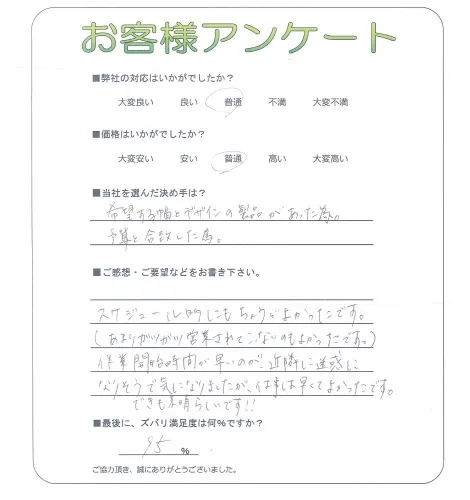 お客様アンケート
■弊社の対応はいかがでしたか?
大変良い 良い 普通 不満 大変不満
■価格はいかがでしたか?
大変安い 安い 普通 高い 大変高い
■当社を選んだ決め手は?
希望する幅とデザインの製品があった為。
予算と合致した為。
■ご感想・ご要望などをお書き下さい。
スケジュール的にもちょうどよかったです。
(あまりガツガツ営業されてこないのもよかったです。)
作業開始時間が早いのが、近隣に迷惑に
なりそうで気になりましたが、仕事は早くてよかったです。
でも素晴らしいです!!
■最後に、ズバリ満足度は何%ですか?
95 %
ご協力頂き、誠にありがとうございました。